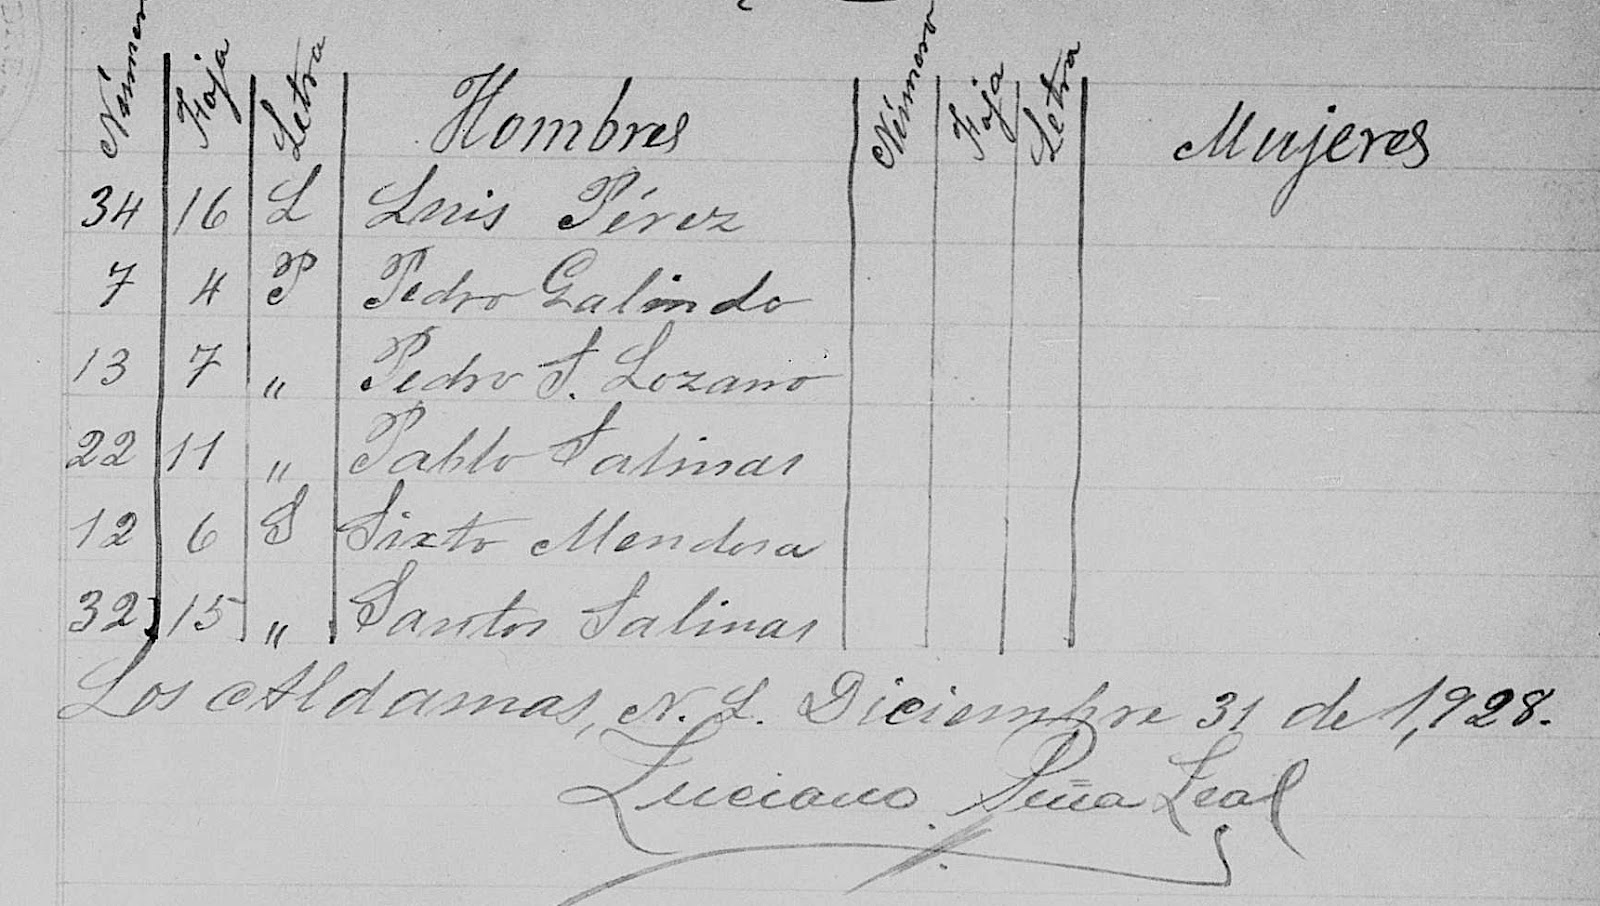 Número Foja Letra Hombres Número Foja Letra Mujeres
34 16 L Luis Pérez
7 4 P Pedro Galindo
13 7 " Pedro S. Lozano
22 11 " Pablo Salinas
12 6 S Sixto Mendosa
32 15 " Santos Salinas
Los Aldamas, N. L. Diciembre 31 de 1,928.
Luciano Peña Leal